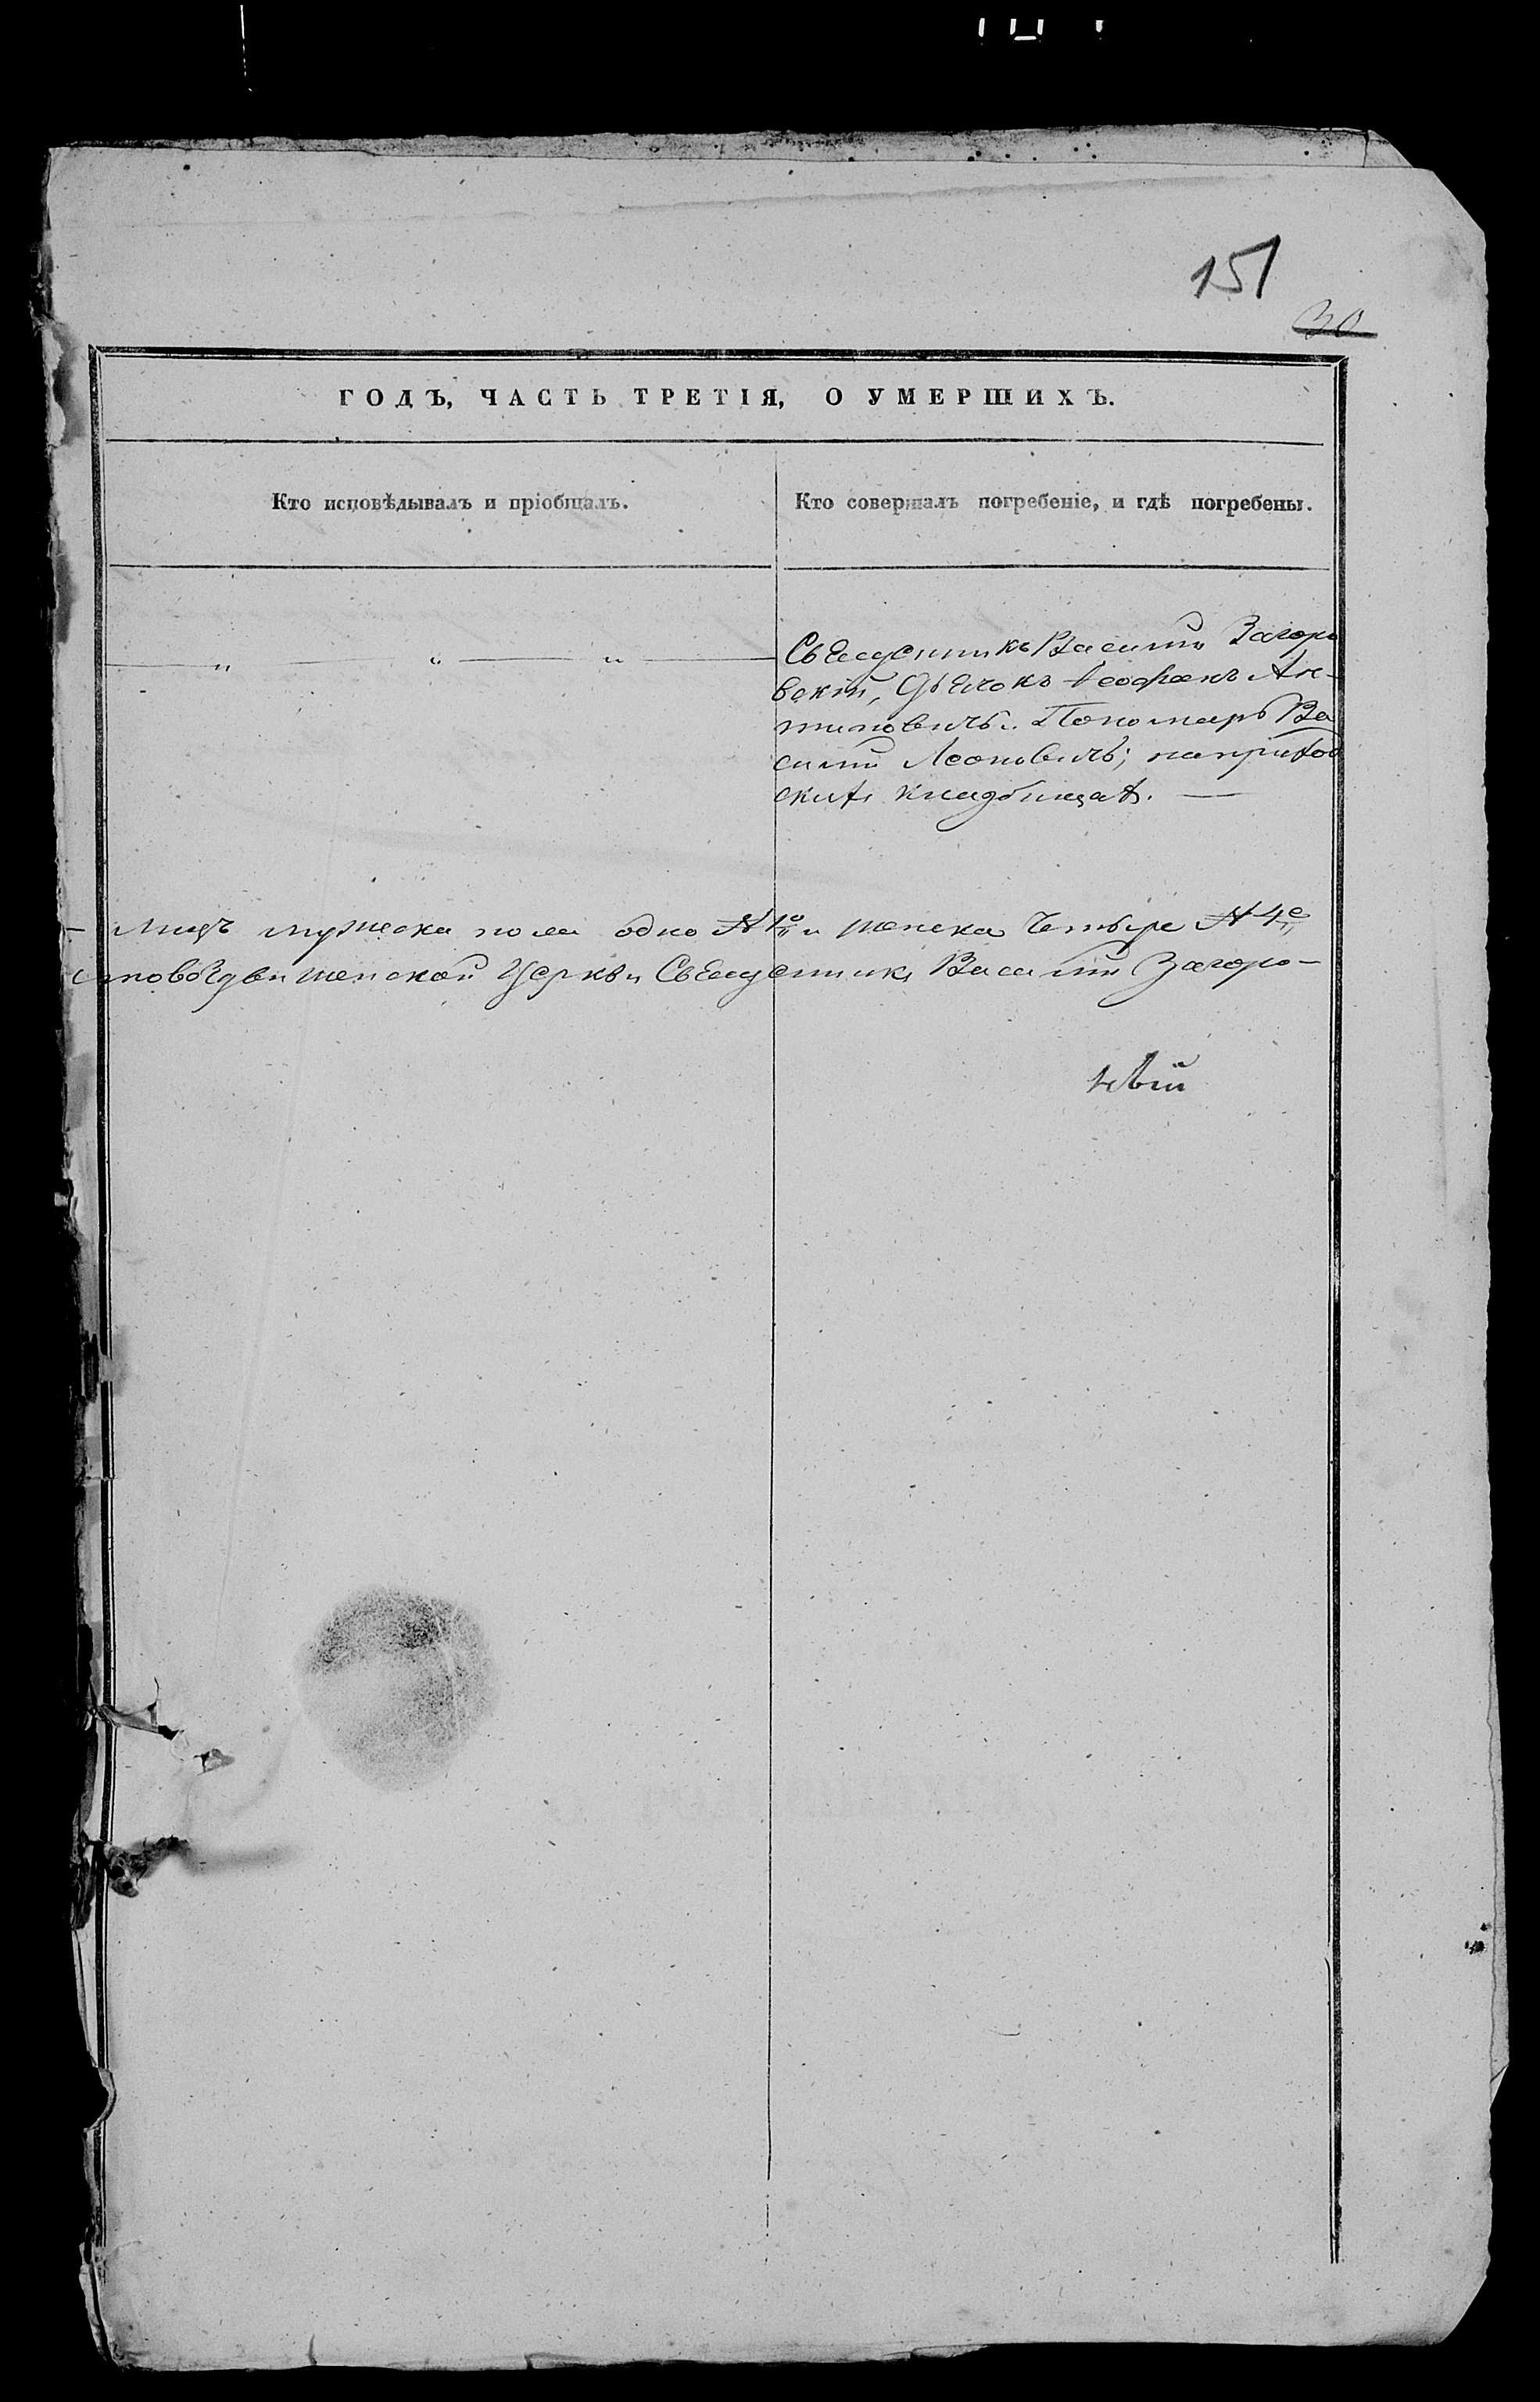 151
30
ГОДЪ, ЧАСТЬ ТРЕТІЯ, О УМЕРШИХЪ.
Кто исповѣдывалъ и пріобщалъ.
Кто совершалъ погребеніе, и гдѣ погребены.
Священникъ Василій Загоро
вскій, Дьячокъ Ѳеофанъ Ан-
типовичъ. Пономарь Ва
силій Леоновичъ; на приход
скихъ кладбищахъ. —
— лицъ мужеска пола одно № 1о и женска Четыре № 4е
стовоздвиженской Церкви Священникъ Василій Загоро-
вскій